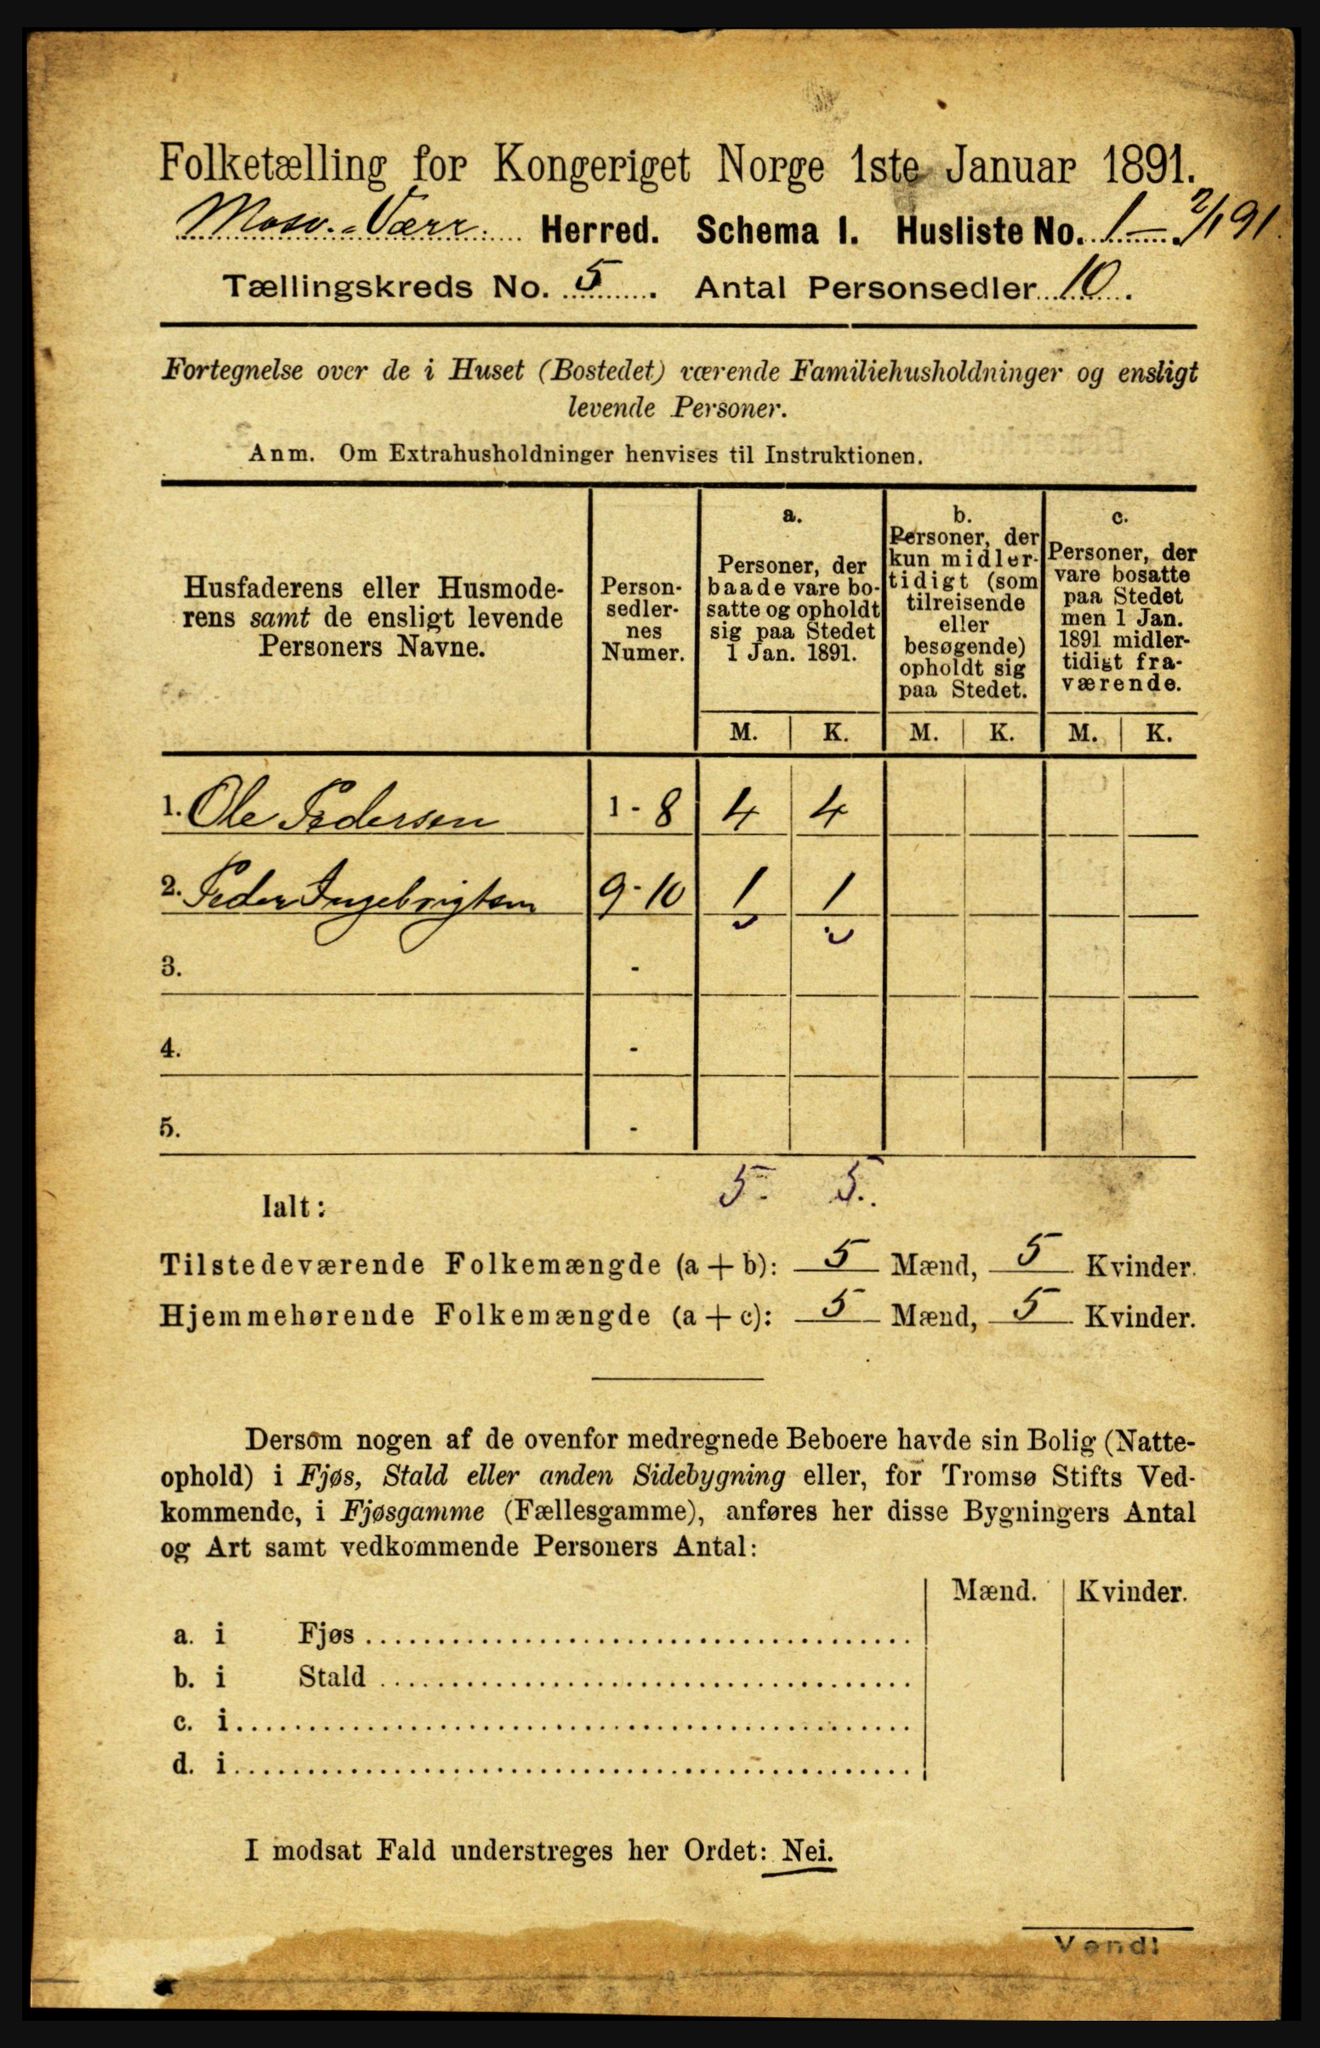 Folketælling for Kongeriget Norge 1ste Januar 1891.
Mosv.-Værr. Herred. Schema 1. Husliste No. 1 - 2/1 91.
Tællingskreds No. 5. Antal Personsedler 10.
Fortegnelse over de i Huset (Bostedet) værende Familiehusholdninger og ensligt
levende Personer.
Anm. Om Extrahusholdninger henvises til Instruktionen.
Husfaderens eller Husmode-
rens samt de ensligt levende
Personers Navne.
Person-
sedler-
nes
Numer.
a.
Personer, der
baade vare bo-
satte og opholdt
sig paa Stedet
1 Jan. 1891.
b.
Personer, der
kun midler-
tidigt (som
tilreisende
eller
besøgende)
opholdt sig
paa Stedet.
c.
Personer, der
vare bosatte
paa Stedet
men 1 Jan.
1891 midler-
tidigt fra-
værende.
M. K. M. K. M. K.
1. Ole Pedersen 1 - 8 4 4
2. Peder Ingebrigtsen 9 - 10 1 1
3. -
4. -
5. -
5. 5.
Ialt:
Tilstedeværende Folkemængde (a + b): 5 Mænd, 5 Kvinder.
Hjemmehørende Folkemængde (a + c): 5 Mænd, 5 Kvinder.
Dersom nogen af de ovenfor medregnede Beboere havde sin Bolig (Natte-
ophold) i Fjøs, Stald eller anden Sidebygning eller, for Tromsø Stifts Ved-
kommende, i Fjøsgamme (Fællesgamme), anføres her disse Bygningers Antal
og Art samt vedkommende Personers Antal:
Mænd. Kvinder.
a. i Fjøs
b. i Stald
c. i
d. i
I modsat Fald understreges her Ordet: Nei.
Vend!